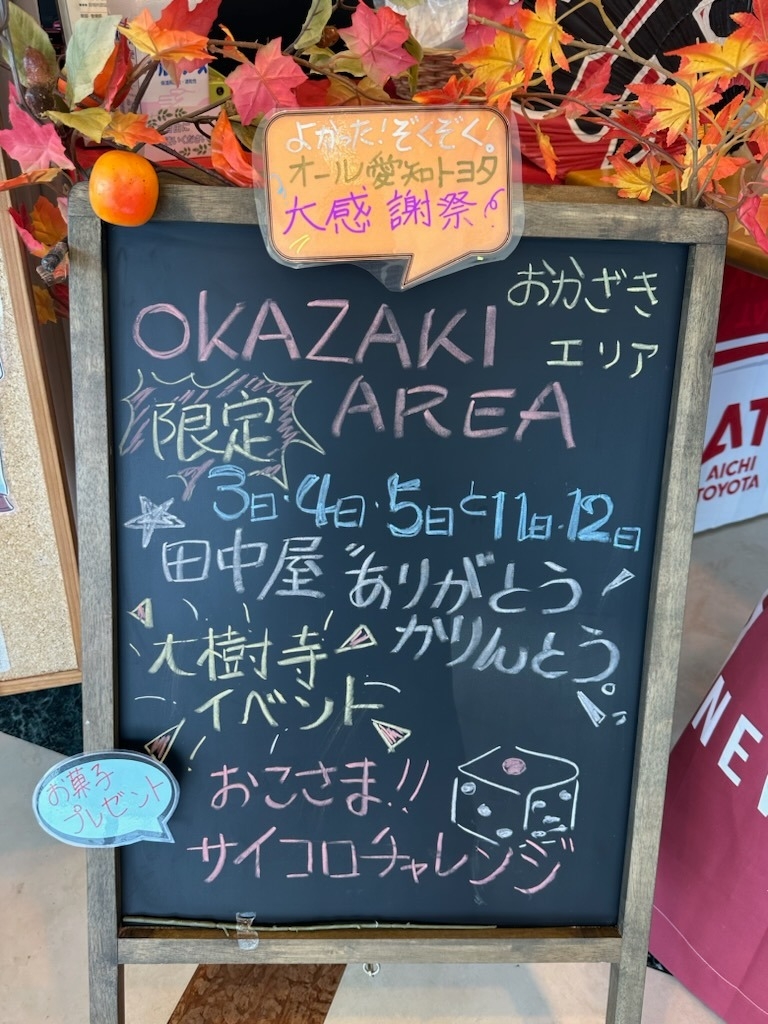 よかった！ぞくぞく。
オール愛知トヨタ
大感謝祭
おかざき
エリア
OKAZAKI
AREA
限定
3日・4日・5日と11日・12日
田中屋 "ありがとう！
かりんとう。
大樹寺
イベント
おこさま!!
サイコロチャレンジ
お菓子
プレゼント
AT
AICHI
TOYOTA
NE